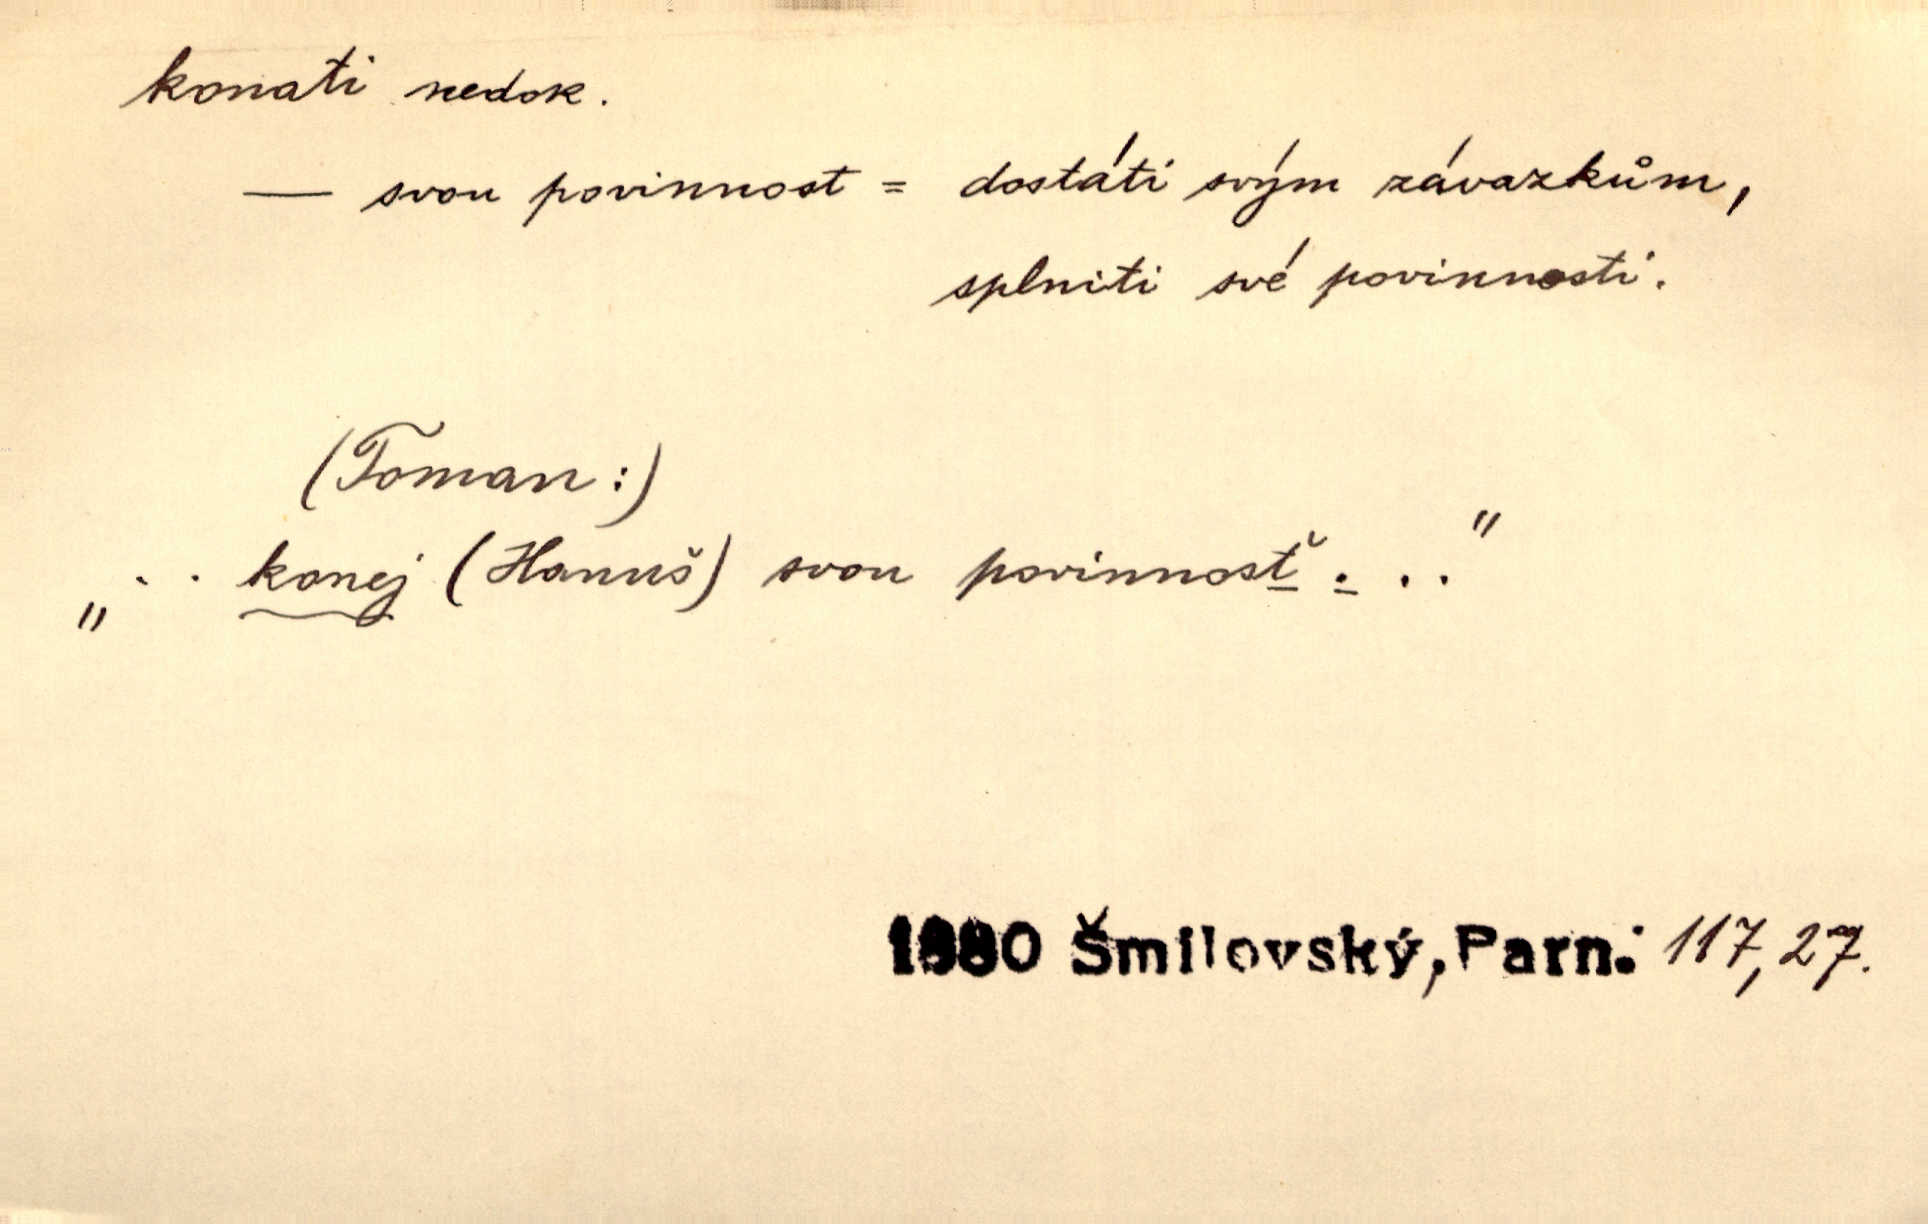 konati nedok.
— svou povinnost = dostáti svým závazkům,
splniti své povinnosti.
(Toman:)
„ . . konej (Hanuš) svou povinnosť . . ."
1880 Šmilovský, Parn. 117, 27.